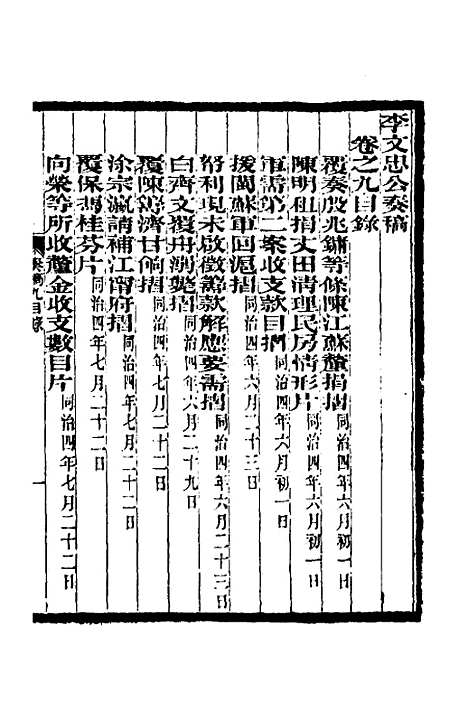 李文忠公奏稿
卷之九目錄
覆奏殷兆鏞等條陳江蘇釐捐摺同治四年六月初一日
陳明租捐丈田清理民房情形片同治四年六月初一日
軍需第二案收支款目摺同治四年六月初一日
援閩蘇軍回滬摺同治四年六月二十三日
帑利現未啟徵籌款解應要需摺同治四年六月二十三日
白齊文覆舟溺斃摺同治四年六月二十九日
覆陳籌濟甘餉摺同治四年七月二十二日
涂宗瀛請補江甯府摺同治四年七月二十二日
覆保馮桂芬片同治四年七月二十二日
向榮等所收釐金收支數目片同治四年七月二十二日
奏稿九目錄
一